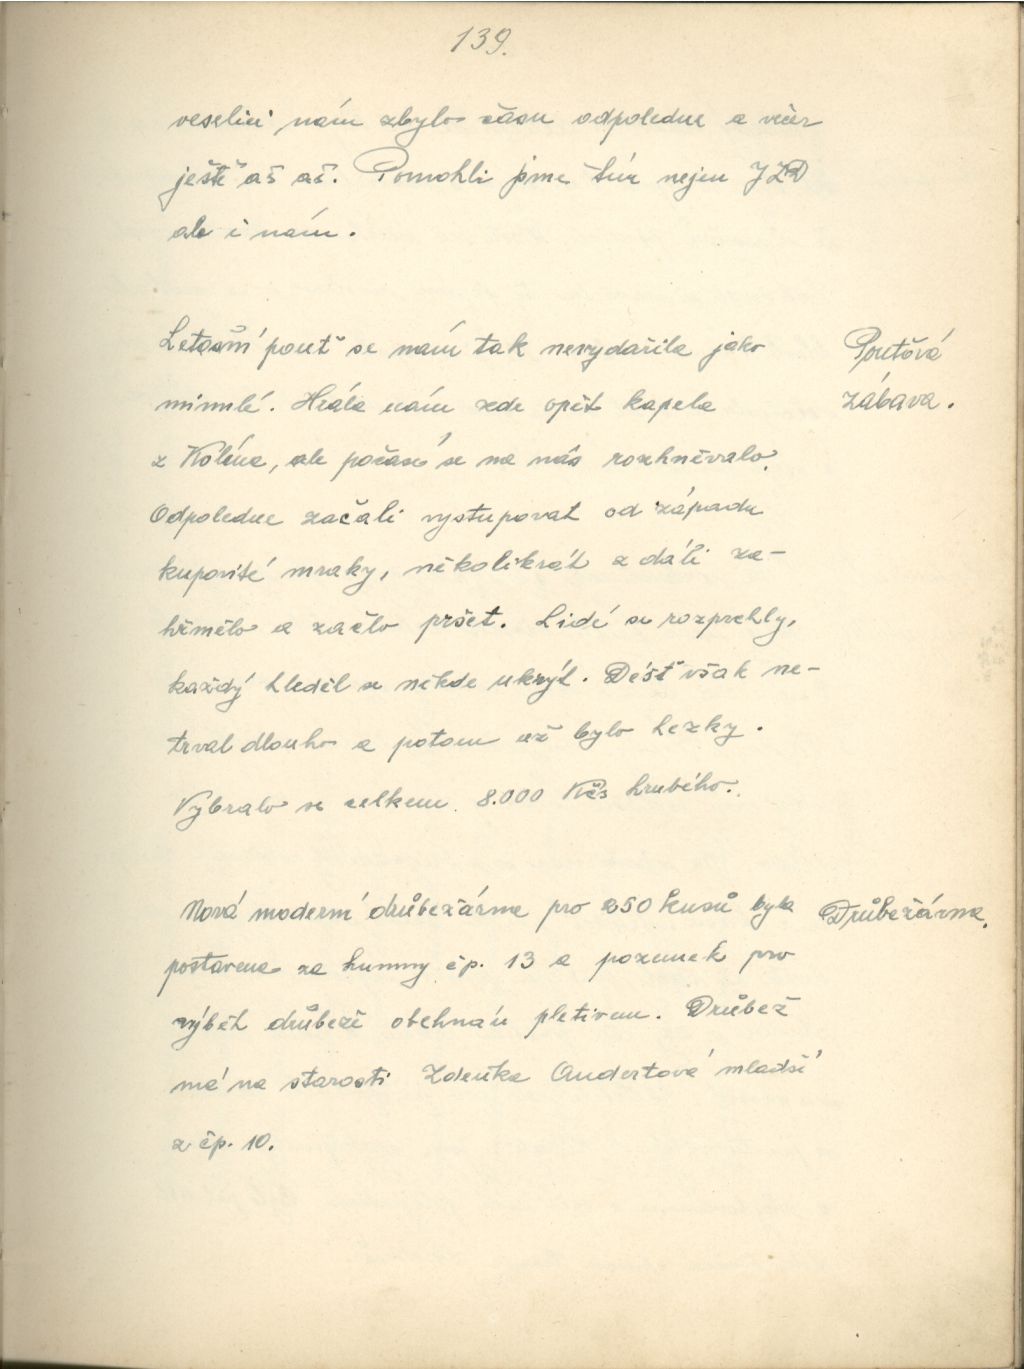 139.
veselici nám zbylo času odpoledne a večer
ještě aš aš. Pomohli jsme tím nejen JZD
ale i nám.
Letošní pouť se nám tak nevydařila jako
minulé. Hrála nám zde opět kapela
z Kolína, ale počasí se na nás rozhněvalo.
Odpoledne začali vystupovat od západu
kupovité mraky, několikrát z dáli za-
hřmělo a začlo pršet. Lidé se rozprchly,
každý hleděl se někde ukrýt. Déšť však ne-
trval dlouho a potom už bylo hezky.
Vybralo se celkem 8.000 Kčs hrubého.
Poutová
zábava.
Nová moderní drůbežárna pro 250 kusů byla
postavena za humny čp. 13 a pozemek pro
výběh drůbeže obehnán pletivem. Drůbež
má na starosti Zdenka Andertová mladší
z čp. 10.
Drůbežárna.